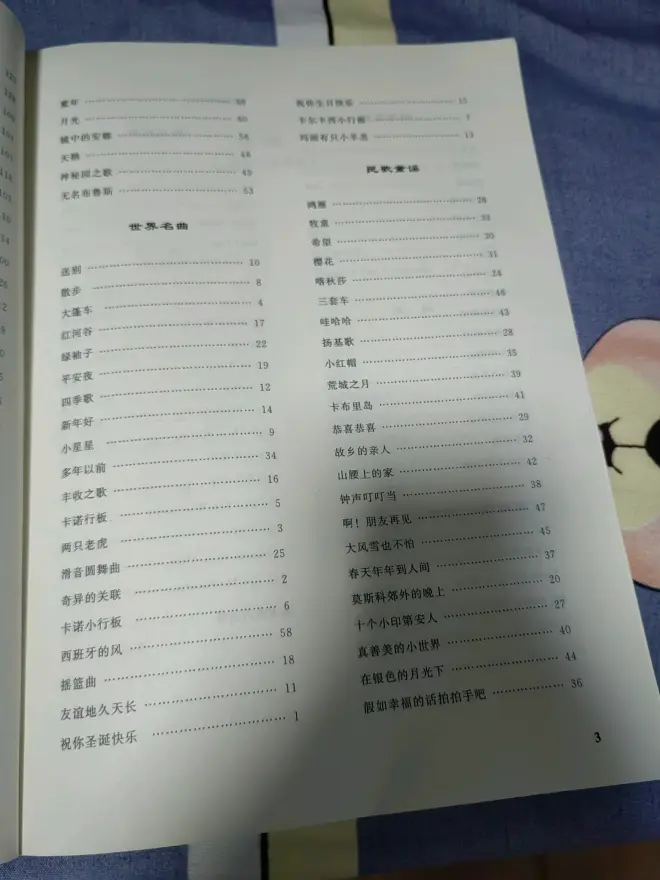 童年 …… 58
月光 …… 60
镜中的安娜 …… 56
天鹅 …… 48
神秘园之歌 …… 49
无名布鲁斯 …… 53
世界名曲
送别 …… 10
散步 …… 8
大篷车 …… 4
红河谷 …… 17
绿袖子 …… 22
平安夜 …… 19
四季歌 …… 12
新年好 …… 14
小星星 …… 9
多年以前 …… 34
丰收之歌 …… 16
卡诺行板 …… 5
两只老虎 …… 3
滑音圆舞曲 …… 25
奇异的关联 …… 2
卡诺小行板 …… 6
西班牙的风 …… 58
摇篮曲 …… 18
友谊地久天长 …… 11
祝你圣诞快乐 …… 1
祝你生日快乐 …… 15
卡尔卡西小行板 …… 7
玛丽有只小羊羔 …… 13
民歌童谣
鸿雁 …… 28
牧童 …… 33
希望 …… 30
樱花 …… 31
嗜秋莎 …… 24
三套车 …… 46
哇哈哈 …… 43
扬基歌 …… 28
小红帽 …… 35
荒城之月 …… 39
卡布里岛 …… 41
恭喜恭喜 …… 29
故乡的亲人 …… 32
山腰上的家 …… 42
钟声叮叮当 …… 38
啊！朋友再见 …… 47
大风雪也不怕 …… 45
春天年年到人间 …… 37
莫斯科郊外的晚上 …… 20
十个小印第安人 …… 27
真善美的小世界 …… 40
在银色的月光下 …… 44
假如幸福的话拍拍手吧 …… 36
3